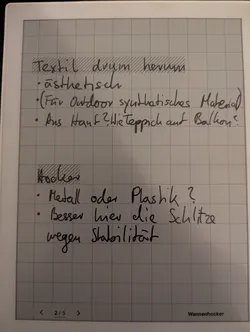 Textil drum herum
• ästhetisch
• (Für Outdoor synthetisches Material)
• Aus Hanf? Wie Teppich auf Balkon?
Hocker
• Metall oder Plastik?
• Besser hier die Schlitze
wegen Stabilität
< 2/5 > Wannenhocker